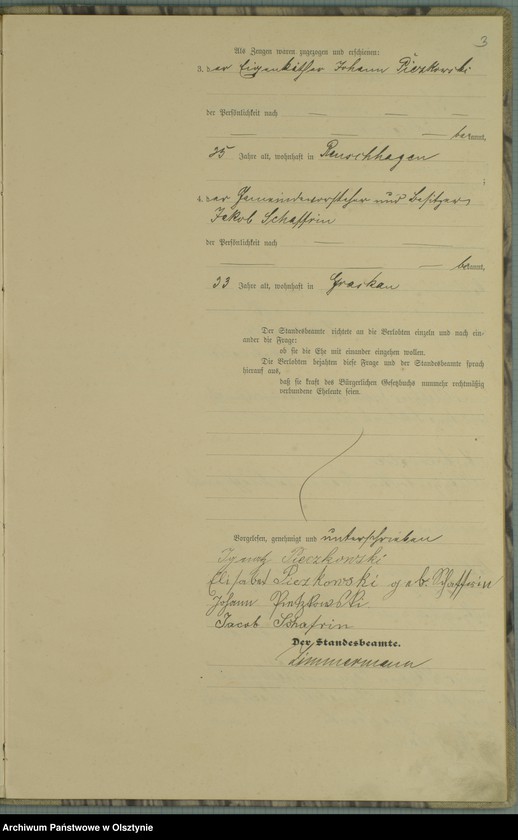 3
Als Zeugen waren zugezogen und erschienen:
3. der Eigenkäthner Johann Pieczkowski
der Persönlichkeit nach
bekannt,
25 Jahre alt, wohnhaft in Rauschhagen
4. der Gemeindevorsteher und Besitzer
Jakob Schaffrin
der Persönlichkeit nach
bekannt,
33 Jahre alt, wohnhaft in Graskau
Der Standesbeamte richtete an die Verlobten einzeln und nach ein-
ander die Frage:
ob sie die Ehe mit einander eingehen wollen.
Die Verlobten bejahten diese Frage und der Standesbeamte sprach
hierauf aus,
daß sie kraft des Bürgerlichen Gesetzbuchs nunmehr rechtmäßig
verbundene Eheleute seien.
Vorgelesen, genehmigt und unterschrieben
Ignatz Pieczkowski
Elisabet Pieczkowski geb. Schaffrin
Johann Pietzkowski.
Jacob Schafrin
Der Standesbeamte.
Zimmermann
Archiwum Państwowe w Olsztynie